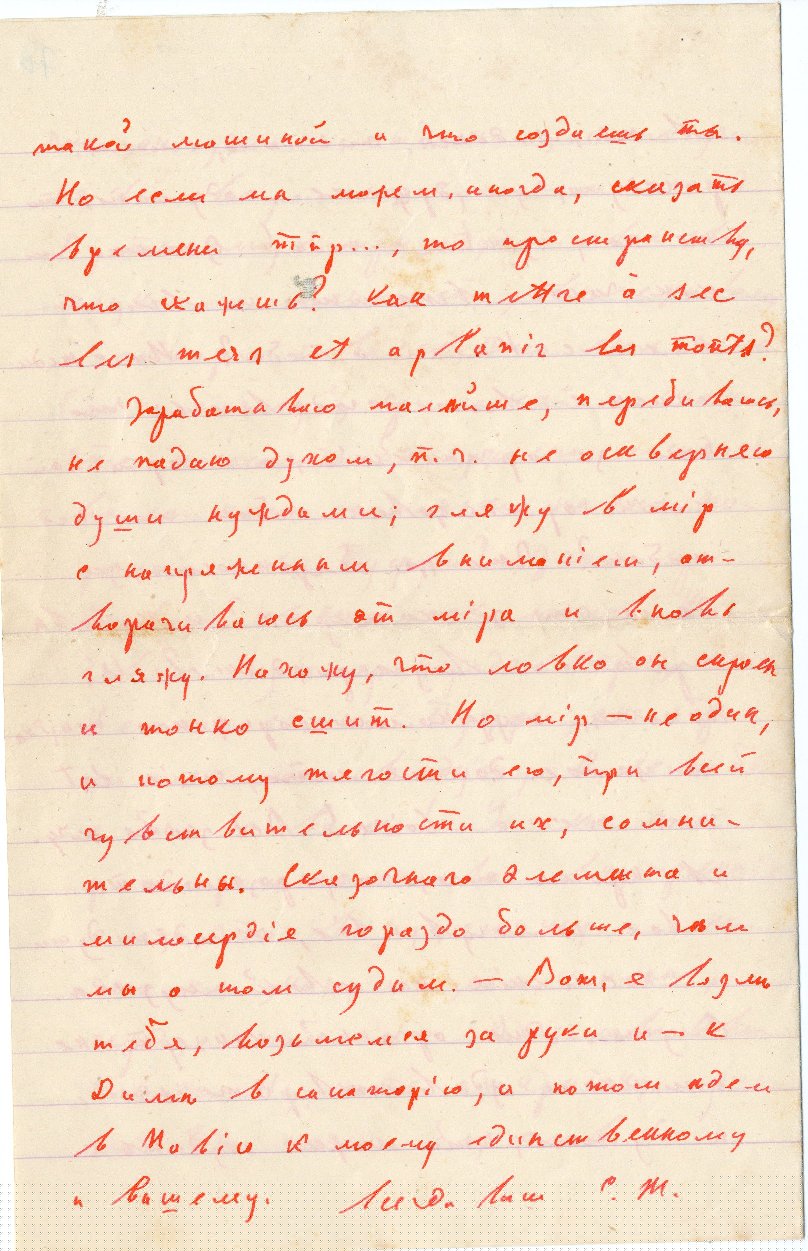 такой машиной и что создаешь ты.
Но если мы можем, иногда, сказать
времени тпр..., то пространству,
что скажешь? Как mettre à sec
les mers et aplanir les monts?
Зарабатываю малейше, перебиваюсь,
не падаю духом, п.ч. не оскверняю
души нуждами; гляжу в мір
с напряженным вниманіем, от-
ворачиваюсь от міра и вновь
гляжу. Нахожу, что ловко он скроен
и тонко сшит. Но мір — не один,
и потому тягости его, при всей
чувствительности их, сомни-
тельны. Сказочнаго элемента и
милосердія гораздо больше, чѣм
мы о том судим. — Вот, я возлѣ
тебя, возьмемся за руки и — к
Димѣ в санаторію, а потом идем
в к моему единственному
и вашему. Всегда ваш